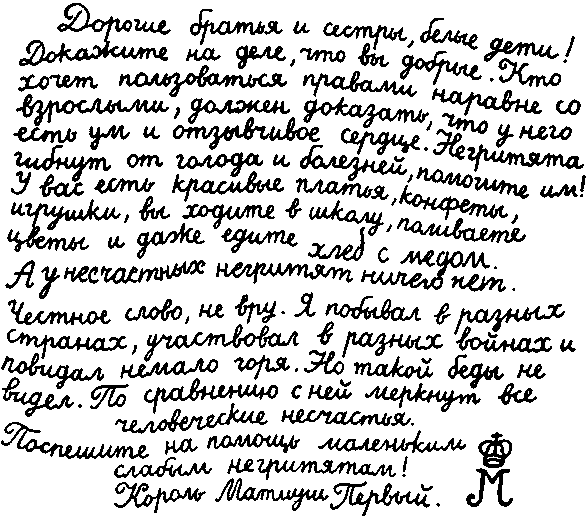 Дорогие братья и сестры, белые дети!
Докажите на деле, что вы добрые. Кто
хочет пользоваться правами наравне со
взрослыми, должен доказать, что у него
есть ум и отзывчивое сердце. Негритята
гибнут от голода и болезней, помогите им!
У вас есть красивые платья, конфеты,
игрушки, вы ходите в школу, поливаете
цветы и даже едите хлеб с медом.
А у несчастных негритят ничего нет.
Честное слово, не вру. Я побывал в разных
странах, участвовал в разных войнах и
повидал немало горя. Но такой беды не
видел. По сравнению с ней меркнут все
человеческие несчастья.
Поспешите на помощь маленьким
слабым негритятам!
Король Матиуш Первый.
М